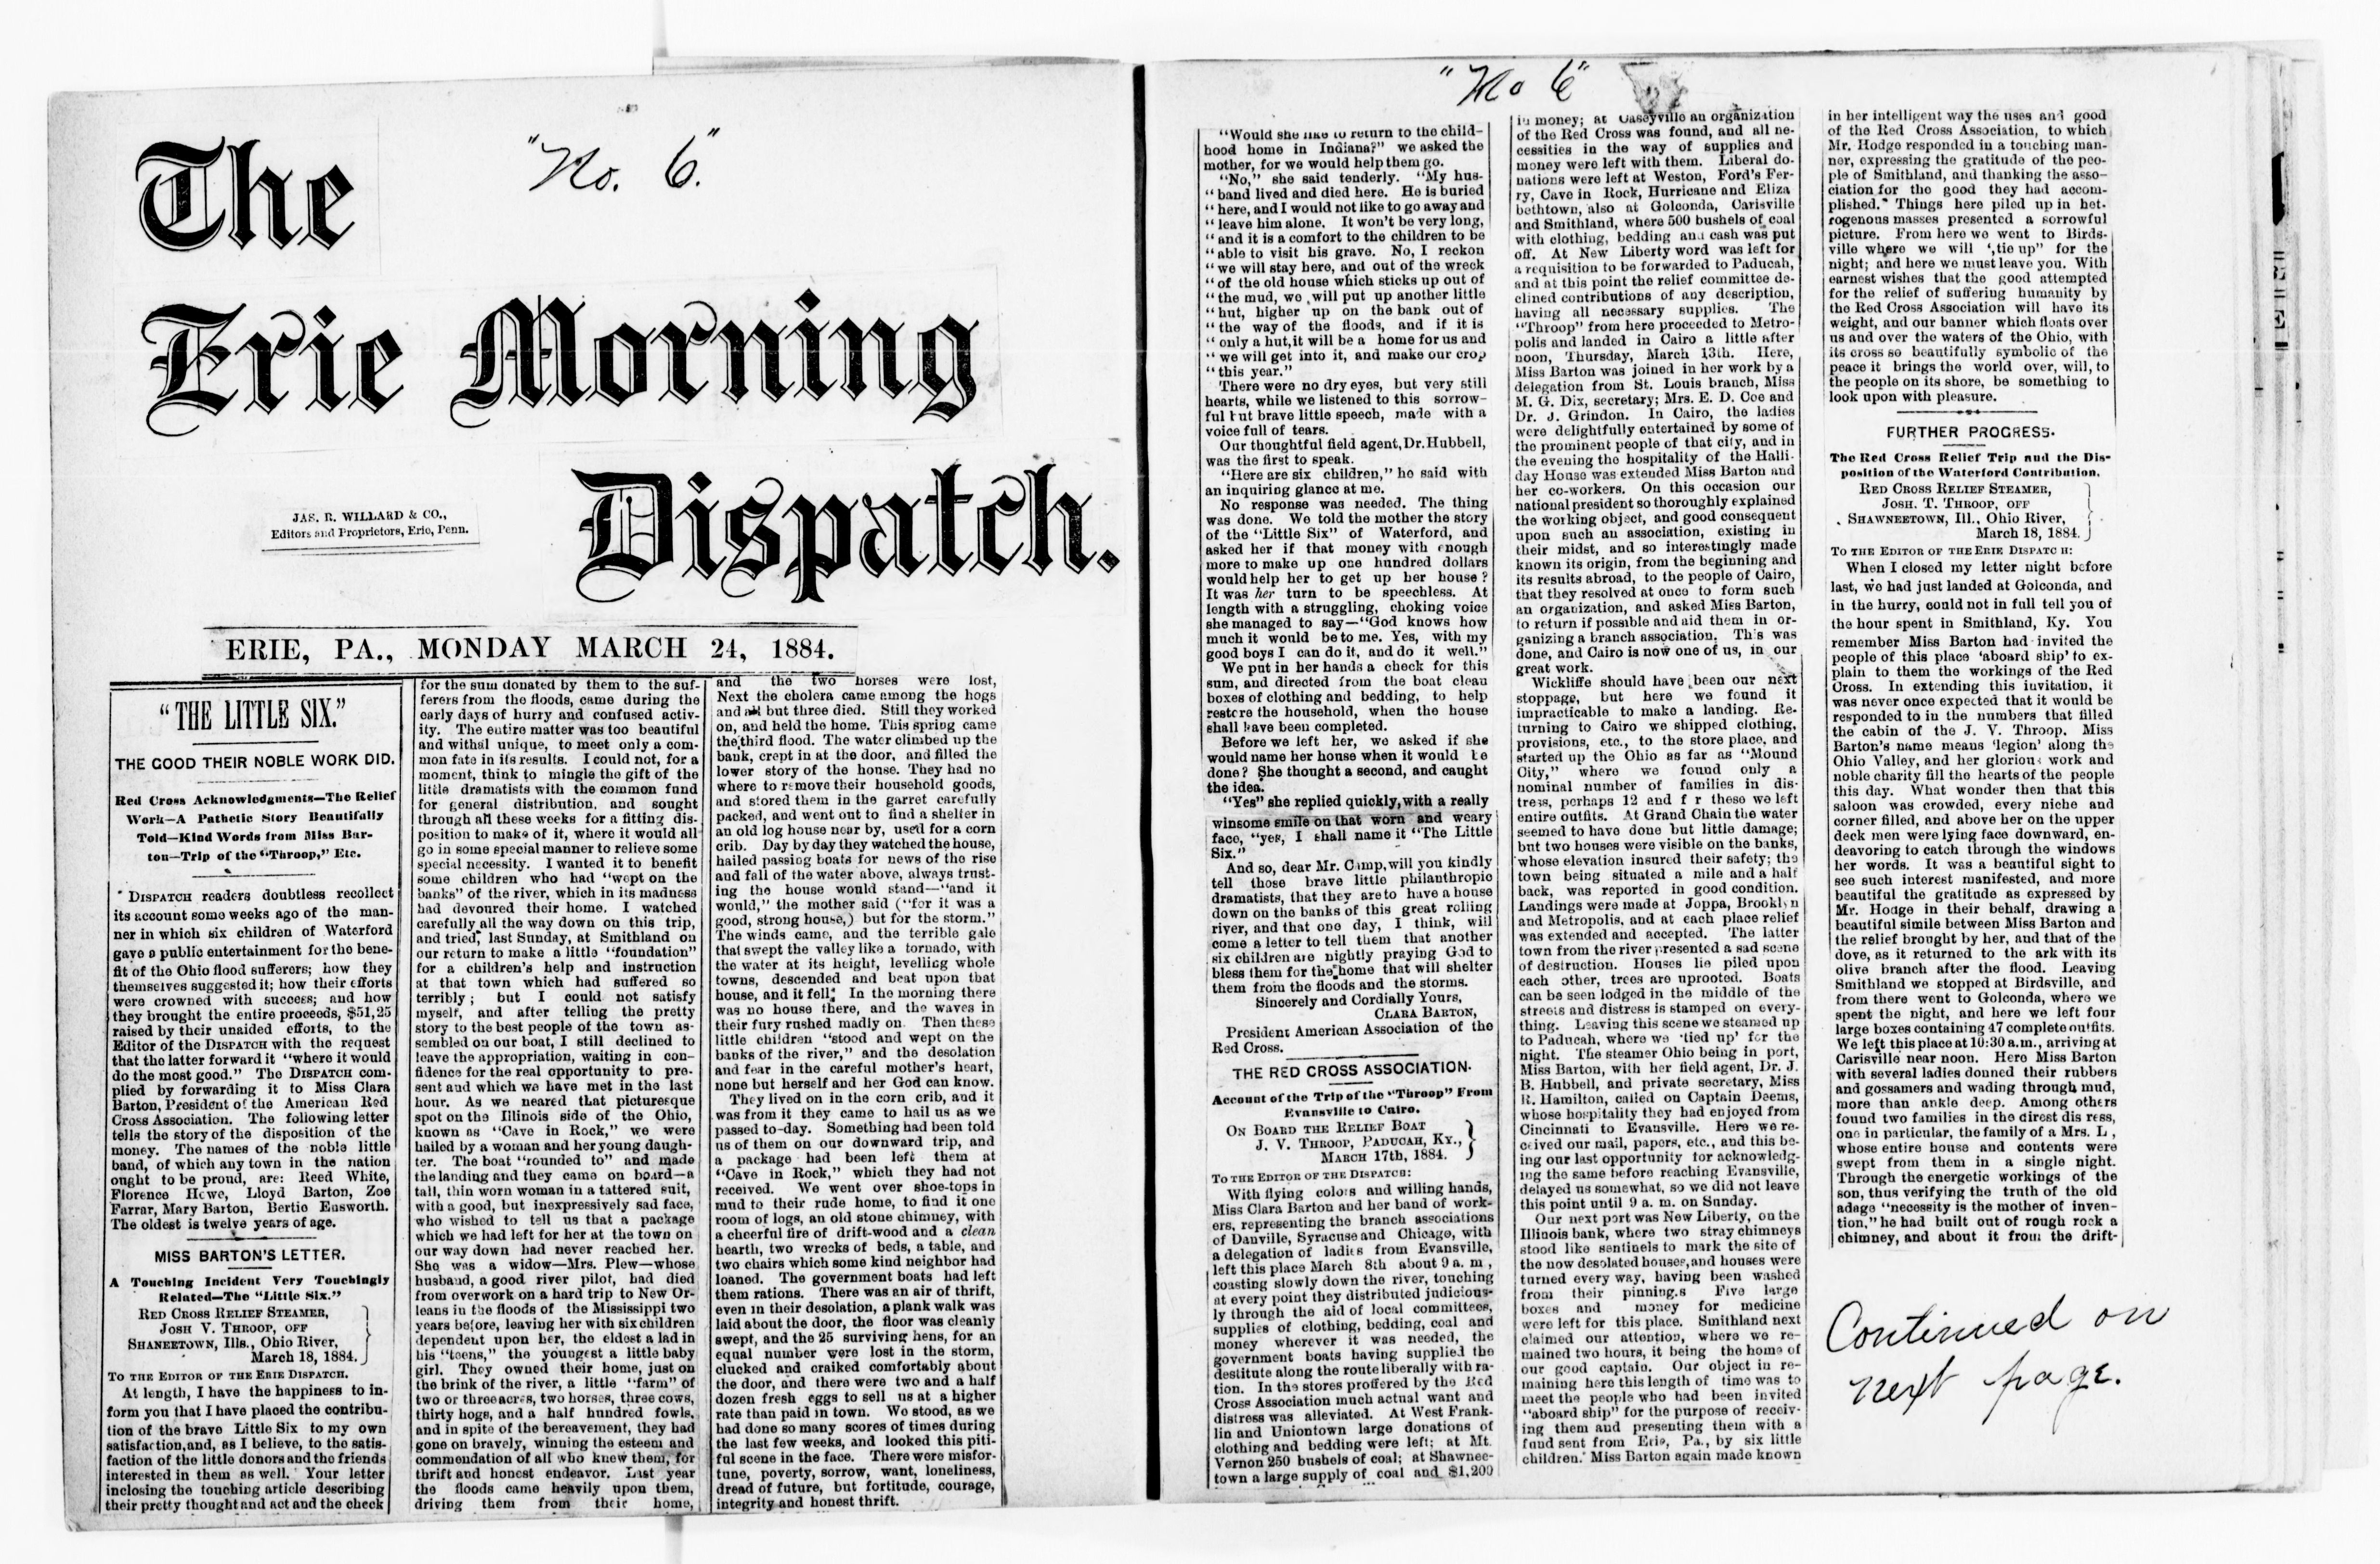 "No. 6."
The
Erie Morning
Dispatch.
JAS. R. WILLARD & CO.,
Editors and Proprietors, Erie, Penn.
ERIE, PA., MONDAY MARCH 24, 1884.
"THE LITTLE SIX."
THE GOOD THEIR NOBLE WORK DID.
Red Cross Acknowledgments—The Relief
Work—A Pathetic Story Beautifully
Told—Kind Words from Miss Bar-
ton—Trip of the "Throop," Etc.
DISPATCH readers doubtless recollect
its account some weeks ago of the man-
ner in which six children of Waterford
gave a public entertainment for the bene-
fit of the Ohio flood sufferers; how they
themselves suggested it; how their efforts
were crowned with success; and how
they brought the entire proceeds, $51,25
raised by their unaided efforts, to the
Editor of the DISPATCH with the request
that the latter forward it "where it would
do the most good." The DISPATCH com-
plied by forwarding it to Miss Clara
Barton, President of the American Red
Cross Association. The following letter
tells the story of the disposition of the
money. The names of the noble little
band, of which any town in the nation
ought to be proud, are: Reed White,
Florence Howe, Lloyd Barton, Zoe
Farrar, Mary Barton, Bertie Ensworth.
The oldest is twelve years of age.
MISS BARTON'S LETTER.
A Touching Incident Very Touchingly
Related—The "Little Six."
RED CROSS RELIEF STEAMER,
JOSH V. THROOP, OFF
SHANEETOWN, Ills., Ohio River,
March 18, 1884.
TO THE EDITOR OF THE ERIE DISPATCH.
At length, I have the happiness to in-
form you that I have placed the contribu-
tion of the brave Little Six to my own
satisfaction,and, as I believe, to the satis-
faction of the little donors and the friends
interested in them as well. Your letter
inclosing the touching article describing
their pretty thought and act and the check
for the sum donated by them to the suf-
ferers from the floods, came during the
early days of hurry and confused activ-
ity. The entire matter was too beautiful
and withal unique, to meet only a com-
mon fate in its results. I could not, for a
moment, think to mingle the gift of the
little dramatists with the common fund
for general distribution, and sought
through all these weeks for a fitting dis-
position to make of it, where it would all
go in some special manner to relieve some
special necessity. I wanted it to benefit
some children who had "wept on the
banks" of the river, which in its madness
had devoured their home. I watched
carefully all the way down on this trip,
and tried, last Sunday, at Smithland on
our return to make a little "foundation"
for a children's help and instruction
at that town which had suffered so
terribly; but I could not satisfy
myself, and after telling the pretty
story to the best people of the town as-
sembled on our boat, I still declined to
leave the appropriation, waiting in con-
fidence for the real opportunity to pre-
sent and which we have met in the last
hour. As we neared that picturesque
spot on the Illinois side of the Ohio,
known as "Cave in Rock," we were
hailed by a woman and her young daugh-
ter. The boat "rounded to" and made
the landing and they came on board—a
tall, thin worn woman in a tattered suit,
with a good, but inexpressively sad face,
who wished to tell us that a package
which we had left for her at the town on
our way down had never reached her.
She was a widow—Mrs. Plew—whose
husband, a good river pilot, had died
from overwork on a hard trip to New Or-
leans in the floods of the Mississippi two
years before, leaving her with six children
dependent upon her, the eldest a lad in
his "teens," the youngest a little baby
girl. They owned their home, just on
the brink of the river, a little "farm" of
two or three acres, two horses, three cows,
thirty hogs, and a half hundred fowls,
and in spite of the bereavement, they had
gone on bravely, winning the esteem and
commendation of all who knew them, for
thrift and honest endeavor. Last year
the floods came heavily upon them,
driving them from their home,
and the two horses were lost,
Next the cholera came among the hogs
and all but three died. Still they worked
on, and held the home. This spring came
the third flood. The water climbed up the
bank, crept in at the door, and filled the
lower story of the house. They had no
where to remove their household goods,
and stored them in the garret carefully
packed, and went out to find a shelter in
an old log house near by, used for a corn
crib. Day by day they watched the house,
hailed passing boats for news of the rise
and fall of the water above, always trust-
ing the house would stand—"and it
would," the mother said ("for it was a
good, strong house,) but for the storm."
The winds came, and the terrible gale
that swept the valley like a tornado, with
the water at its height, levelling whole
towns, descended and beat upon that
house, and it fell. In the morning there
was no house there, and the waves in
their fury rushed madly on. Then these
little children "stood and wept on the
banks of the river," and the desolation
and fear in the careful mother's heart,
none but herself and her God can know.
They lived on in the corn crib, and it
was from it they came to hail us as we
passed to-day. Something had been told
us of them on our downward trip, and
a package had been left them at
"Cave in Rock," which they had not
received. We went over shoe-tops in
mud to their rude home, to find it one
room of logs, an old stone chimney, with
a cheerful fire of drift-wood and a clean
hearth, two wrecks of beds, a table, and
two chairs which some kind neighbor had
loaned. The government boats had left
them rations. There was an air of thrift,
even in their desolation, a plank walk was
laid about the door, the floor was cleanly
swept, and the 25 surviving hens, for an
equal number were lost in the storm,
clucked and craiked comfortably about
the door, and there were two and a half
dozen fresh eggs to sell us at a higher
rate than paid in town. We stood, as we
had done so many scores of times during
the last few weeks, and looked this piti-
ful scene in the face. There were misfor-
tune, poverty, sorrow, want, loneliness,
dread of future, but fortitude, courage,
integrity and honest thrift.
"No 6"
"Would she like to return to the child-
hood home in Indiana?" we asked the
mother, for we would help them go.
"No," she said tenderly. "My hus-
"band lived and died here. He is buried
"here, and I would not like to go away and
"leave him alone. It won't be very long,
"and it is a comfort to the children to be
"able to visit his grave. No, I reckon
"we will stay here, and out of the wreck
"of the old house which sticks up out of
"the mud, we will put up another little
"hut, higher up on the bank out of
"the way of the floods, and if it is
"only a hut,it will be a home for us and
"we will get into it, and make our crop
"this year."
There were no dry eyes, but very still
hearts, while we listened to this sorrow-
ful but brave little speech, made with a
voice full of tears.
Our thoughtful field agent,Dr.Hubbell,
was the first to speak.
"Here are six children," he said with
an inquiring glance at me.
No response was needed. The thing
was done. We told the mother the story
of the "Little Six" of Waterford, and
asked her if that money with enough
more to make up one hundred dollars
would help her to get up her house?
It was her turn to be speechless. At
length with a struggling, choking voice
she managed to say—"God knows how
much it would be to me. Yes, with my
good boys I can do it, and do it well."
We put in her hands a check for this
sum, and directed from the boat clean
boxes of clothing and bedding, to help
restore the household, when the house
shall have been completed.
Before we left her, we asked if she
would name her house when it would be
done? She thought a second, and caught
the idea.
"Yes" she replied quickly,with a really
winsome smile on that worn and weary
face, "yes, I shall name it "The Little
Six."
And so, dear Mr. Camp,will you kindly
tell those brave little philanthropic
dramatists, that they are to have a house
down on the banks of this great rolling
river, and that one day, I think, will
come a letter to tell them that another
six children are nightly praying God to
bless them for the home that will shelter
them from the floods and the storms.
Sincerely and Cordially Yours,
CLARA BARTON,
President American Association of the
Red Cross.
THE RED CROSS ASSOCIATION.
Account of the Trip of the "Throop" From
Evansville to Cairo.
ON BOARD THE RELIEF BOAT
J. V. THROOP, PADUCAH, KY.,
MARCH 17th, 1884.
TO THE EDITOR OF THE DISPATCH:
With flying colors and willing hands,
Miss Clara Barton and her band of work-
ers, representing the branch associations
of Danville, Syracuse and Chicago, with
a delegation of ladies from Evansville,
left this place March 8th about 9 a. m,
coasting slowly down the river, touching
at every point they distributed judicious-
ly through the aid of local committees,
supplies of clothing, bedding, coal and
money wherever it was needed, the
government boats having supplied the
destitute along the route liberally with ra-
tion. In the stores proffered by the Red
Cross Association much actual want and
distress was alleviated. At West Frank-
lin and Uniontown large donations of
clothing and bedding were left; at Mt.
Vernon 250 bushels of coal; at Shawnee-
town a large supply of coal and $1,200
in money; at Caseyville an organization
of the Red Cross was found, and all ne-
cessities in the way of supplies and
money were left with them. Liberal do-
nations were left at Weston, Ford's Fer-
ry, Cave in Rock, Hurricane and Eliza
bethtown, also at Golconda, Carisville
and Smithland, where 500 bushels of coal
with clothing, bedding and cash was put
off. At New Liberty word was left for
a requisition to be forwarded to Paducah,
and at this point the relief committee de-
clined contributions of any description,
having all necessary supplies. The
"Throop" from here proceeded to Metro-
polis and landed in Cairo a little after
noon, Thursday, March 13th. Here,
Miss Barton was joined in her work by a
delegation from St. Louis branch, Miss
M. G. Dix, secretary; Mrs. E. D. Coe and
Dr. J. Grindon. In Cairo, the ladies
were delightfully entertained by some of
the prominent people of that city, and in
the evening the hospitality of the Halli-
day House was extended Miss Barton and
her co-workers. On this occasion our
national president so thoroughly explained
the working object, and good consequent
upon such an association, existing in
their midst, and so interestingly made
known its origin, from the beginning and
its results abroad, to the people of Cairo,
that they resolved at once to form such
an organization, and asked Miss Barton,
to return if possible and aid them in or-
ganizing a branch association. Th's was
done, and Cairo is now one of us, in our
great work.
Wickliffe should have been our next
stoppage, but here we found it
impracticable to make a landing. Re-
turning to Cairo we shipped clothing,
provisions, etc., to the store place, and
started up the Ohio as far as "Mound
City," where we found only a
nominal number of families in dis-
tress, perhaps 12 and f r these we left
entire outfits. At Grand Chain the water
seemed to have done but little damage;
but two houses were visible on the banks,
whose elevation insured their safety; the
town being situated a mile and a half
back, was reported in good condition.
Landings were made at Joppa, Brooklyn
and Metropolis, and at each place relief
was extended and accepted. The latter
town from the river presented a sad scene
of destruction. Houses lie piled upon
each other, trees are uprooted. Boats
can be seen lodged in the middle of the
streets and distress is stamped on every-
thing. Leaving this scene we steamed up
to Paducah, where we 'tied up' for the
night. The steamer Ohio being in port,
Miss Barton, with her field agent, Dr. J.
B. Hubbell, and private secretary, Miss
R. Hamilton, called on Captain Deems,
whose hospitality they had enjoyed from
Cincinnati to Evansville. Here we re-
ceived our mail, papers, etc., and this be-
ing our last opportunity for acknowledg-
ing the same before reaching Evansville,
delayed us somewhat, so we did not leave
this point until 9 a. m. on Sunday.
Our next port was New Liberty, on the
Illinois bank, where two stray chimneys
stood like sentinels to mark the site of
the now desolated houses,and houses were
turned every way, having been washed
from their pinning.s Five large
boxes and money for medicine
were left for this place. Smithland next
claimed our attention, where we re-
mained two hours, it being the home of
our good captain. Our object in re-
maining here this length of time was to
meet the people who had been invited
"aboard ship" for the purpose of receiv-
ing them and presenting them with a
fund sent from Erie, Pa., by six little
children. Miss Barton again made known
in her intelligent way the uses and good
of the Red Cross Association, to which
Mr. Hodge responded in a touching man-
ner, expressing the gratitude of the peo-
ple of Smithland, and thanking the asso-
ciation for the good they had accom-
plished. Things here piled up in het-
rogenous masses presented a sorrowful
picture. From here we went to Birds-
ville where we will 'tie up" for the
night; and here we must leave you. With
earnest wishes that the good attempted
for the relief of suffering humanity by
the Red Cross Association will have its
weight, and our banner which floats over
us and over the waters of the Ohio, with
its cross so beautifully symbolic of the
peace it brings the world over, will, to
the people on its shore, be something to
look upon with pleasure.
FURTHER PROGRESS.
The Red Cross Relief Trip and the Dis-
position of the Waterford Contribution.
RED CROSS RELIEF STEAMER,
JOSH. T. THROOP, OFF
SHAWNEETOWN, Ill., Ohio River,
March 18, 1884.
TO THE EDITOR OF THE ERIE DISPATCH:
When I closed my letter night before
last, we had just landed at Golconda, and
in the hurry, could not in full tell you of
the hour spent in Smithland, Ky. You
remember Miss Barton had invited the
people of this place 'aboard ship' to ex-
plain to them the workings of the Red
Cross. In extending this invitation, it
was never once expected that it would be
responded to in the numbers that filled
the cabin of the J. V. Throop. Miss
Barton's name means 'legion' along the
Ohio Valley, and her glorious work and
noble charity fill the hearts of the people
this day. What wonder then that this
saloon was crowded, every niche and
corner filled, and above her on the upper
deck men were lying face downward, en-
deavoring to catch through the windows
her words. It was a beautiful sight to
see such interest manifested, and more
beautiful the gratitude as expressed by
Mr. Hodge in their behalf, drawing a
beautiful simile between Miss Barton and
the relief brought by her, and that of the
dove, as it returned to the ark with its
olive branch after the flood. Leaving
Smithland we stopped at Birdsville, and
from there went to Golconda, where we
spent the night, and here we left four
large boxes containing 47 complete outfits.
We left this place at 10:30 a.m., arriving at
Carisville near noon. Here Miss Barton
with several ladies donned their rubbers
and gossamers and wading through mud,
more than ankle deep. Among others
found two families in the direst dis ress,
one in particular, the family of a Mrs. L,
whose entire house and contents were
swept from them in a single night.
Through the energetic workings of the
son, thus verifying the truth of the old
adage "necessity is the mother of inven-
tion," he had built out of rough rock a
chimney, and about it from the drift-
Continued on
next page.